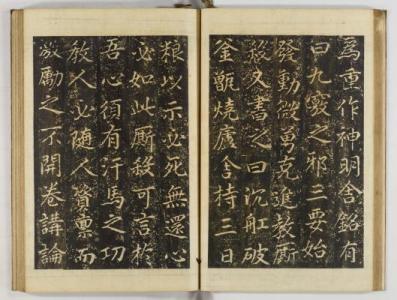 為重作神明舍銘有
曰九竅之邪三要始
發動微勇克進教厮
殺又書之曰沉舡破
釜甑燒廬舍持三日
粮以示必死無還心
必如此厮殺可言扵
吾心須有汗馬之功
教人必隨人資禀而
激勵之不開卷講論